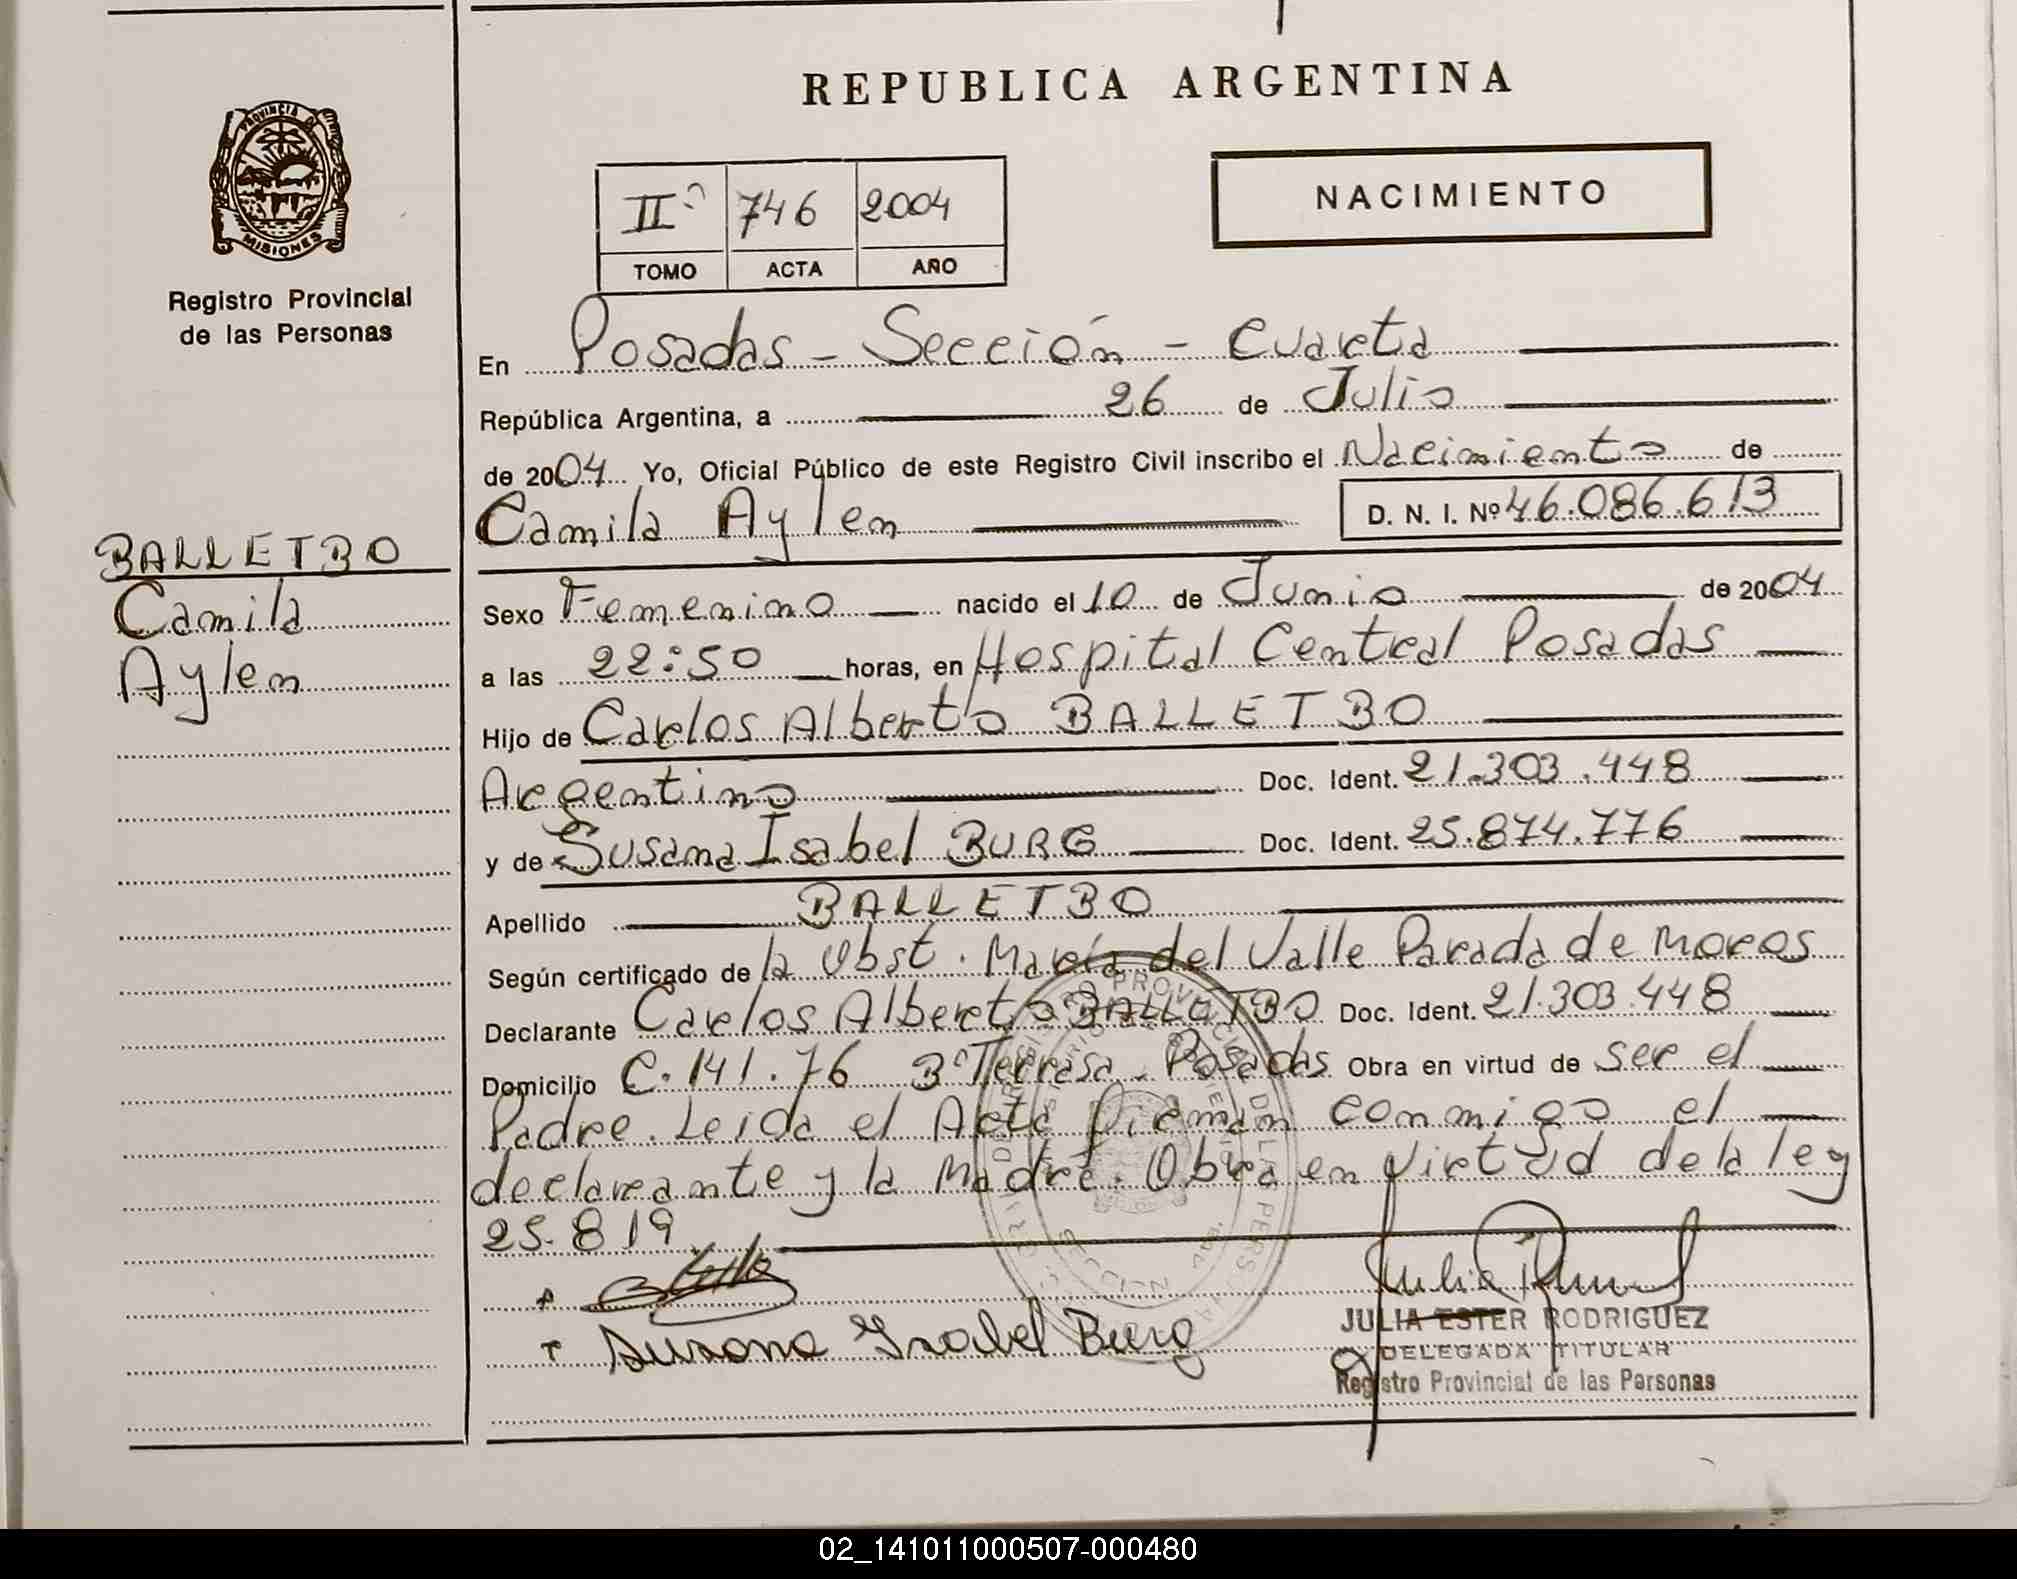 REPUBLICA ARGENTINA
PROVINCIA DE
MISIONES
Registro Provincial
de las Personas
IIº 746 2004
TOMO ACTA AÑO
NACIMIENTO
En Posadas - Sección - Cuarta
República Argentina, a 26 de Julio
de 2004 Yo, Oficial Público de este Registro Civil inscribo el Nacimiento de
Camila Aylen D. N. I. Nº 46.086.613
BALLETBO
Camila
Aylen
Sexo Femenino nacido el 10 de Junio de 2004
a las 22:50 horas, en Hospital Central Posadas
Hijo de Carlos Alberto BALLETBO
Argentino Doc. Ident. 21.303.448
y de Susana Isabel BURG Doc. Ident. 25.874.776
Apellido BALLETBO
Según certificado de la Obst. María del Valle Parada de Moros
Declarante Carlos Alberto BALLETBO Doc. Ident. 21.303.448
Domicilio C. 141. 76 Bº Terrasa - Posadas Obra en virtud de ser el
Padre. Leida el Acta firman conmigo el
declarante y la Madre. Obra en virtud de la ley
25.819
Susana Isabel Burg
JULIA ESTER RODRIGUEZ
DELEGADA TITULAR
Registro Provincial de las Personas
02_141011000507-000480